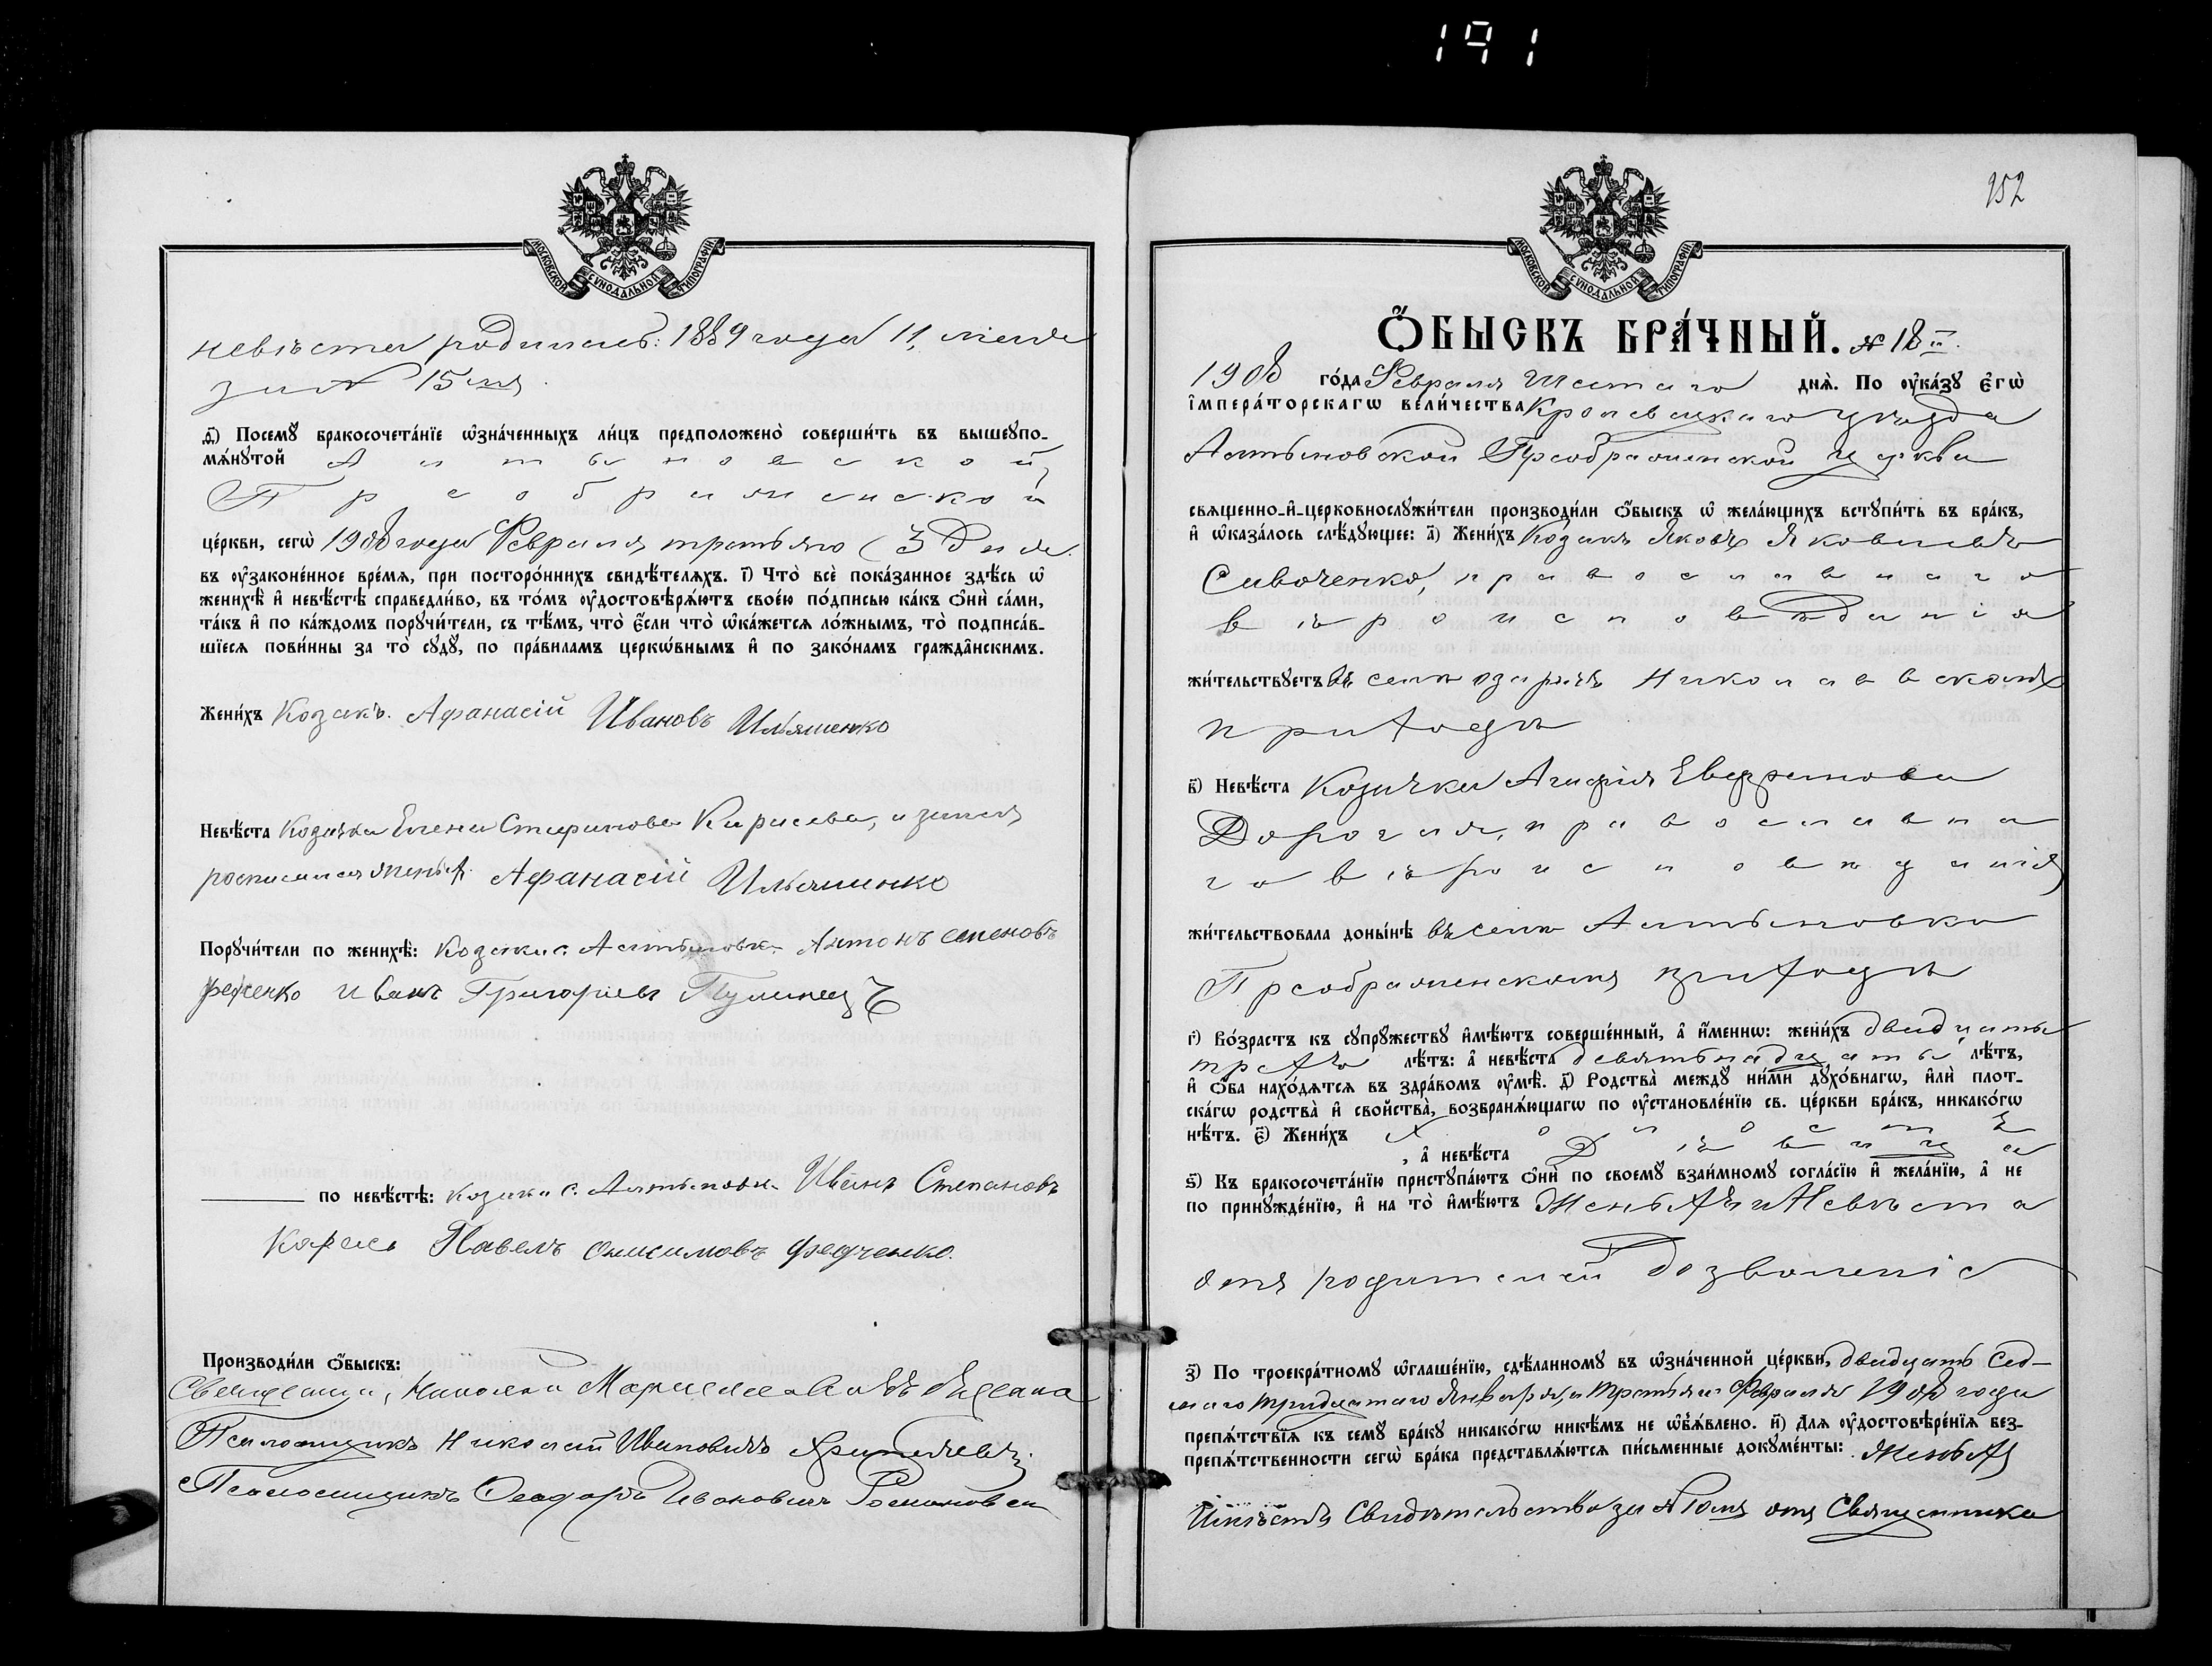 191
МОСКОВСКОЙ СѴНОДАЛЬНОЙ ТИПОГРАФІИ
невѣста родилась: 1889 года 11, мая
за № 15мъ
д҃і) Посемꙋ̀ бракосочета́нїе ѡ҆зна́ченныхъ ли́цъ предположено̀ соверши́ть въ вышеꙋпо-
мѧ́нꙋтой Алтыновской,
Преображенской
це́ркви, сегѡ̀ 1908 года Февраля третьяго (3 Дня
въ ᲂу҆законе́нное вре́мѧ, при посторо́ннихъ свидѣ́телѧхъ. і҃) Что̀ всѐ пока́занное здѣ́сь ѡ҆
женихѣ̀ и҆ невѣ́стѣ справедли́во, въ то́мъ ᲂу҆достовѣрѧ́ютъ свое́ю по́дписью ка́къ ѻ҆нѝ са́ми,
та́къ и҆ по ка́ждомъ порꙋчи́тели, съ тѣ́мъ, что̀ є҆́сли что̀ ѡ҆ка́жетсѧ ло́жнымъ, то̀ подписа́в-
шїесѧ пови́нны за то̀ сꙋдꙋ̀, по пра́виламъ церко́внымъ и҆ по зако́намъ гражда̑нскимъ.
Жени́хъ Козакъ Афанасій Ивановъ Ильяшенко
Невѣ́ста Козачка Елена Стефанова Кирисева, а за нея
росписался женихъ Афанасій Ильяшенко
Порꙋчи́тели по женихѣ̀: Козаки с. Алтыновки Антонъ Семеновъ
Иванъ Григорьевъ
по невѣ́стѣ: козаки с. Алтыновки Иванъ Степановъ
Павелъ Онисимовъ Федченко.
Производи́ли ѻ҆́быскъ:
Священникъ Николай
Псаломщикъ Николай Ивановичъ
Псаломщикъ Ѳеодоръ Ивановичъ
152
МОСКОВСКОЙ СѴНОДАЛЬНОЙ ТИПОГРАФІИ
Ѻ҆́БЫСКЪ БРА́ЧНЫЙ. № 18й.
1908 го́да Февраля Шестаго днѧ̀. По ᲂу҆ка́зꙋ є҆гѡ̀
і҆мпера́торскагѡ вели́чества Кролевецкаго уѣзда
Алтыновской Преображенской церкви
свѧщенно-и҆-церковнослꙋжи́тели производи́ли ѻ҆́быскъ ѡ҆ жела́ющихъ встꙋпи́ть въ бра́къ,
и҆ ѡ҆каза́лось слѣ́дꙋющее: а҃) Жени́хъ Козакъ Яковъ Яковлевъ
Сивоченко, православнаго
вѣроисповѣданія
жи́тельствꙋетъ въ селѣ Озаричъ Николаевскомъ
приходѣ
в҃) Невѣ́ста Козачка Агафія Евфремова
Дорогая, православна
го вѣроисповѣданія
жи́тельствовала доны́нѣ въ селѣ Алтыновкѣ
Преображенскомъ приходѣ
г҃) Во́зрастъ къ сꙋпрꙋ́жествꙋ и҆мѣ́ютъ соверше́нный, а҆ и҆́менно: жени́хъ двадцати
трехъ лѣ́тъ: а҆ невѣ́ста девятьнадцати лѣ́тъ,
и҆ ѻ҆́ба нахо́дѧтсѧ въ здра́вомъ ᲂу҆мѣ̀. д҃) Родства̀ междꙋ̀ ни́ми дꙋхо́внагѡ, и҆лѝ плот-
ска́гѡ родства̀ и҆ свойства̀, возбранѧ́ющагѡ по ᲂу҆становле́нїю св. це́ркви бра́къ, никако́гѡ
нѣ́тъ. є҃) Жени́хъ Холостъ
, а҆ невѣ́ста Дѣвица
ѕ҃) Къ бракосочета́нїю пристꙋпа́ютъ ѻ҆нѝ по своемꙋ̀ взаи́мномꙋ согла́сїю и҆ жела́нїю, а҆ не
по принꙋжде́нїю, и҆ на то̀ и҆мѣ́ютъ Женихъ и Невѣста
отъ родителей дозволеніе
з҃) По троекра́тномꙋ ѡ҆глаше́нїю, сдѣ́ланномꙋ въ ѡ҆зна́ченной це́ркви, двадцать сед-
маго тридцатаго Января, и третьяго Февраля 1908 года
препѧ́тствїѧ къ семꙋ̀ бра́кꙋ никако́гѡ никѣ́мъ не ѡ҆б̾ѧ́влено. и҃) Длѧ ᲂу҆достовѣре́нїѧ без-
препѧ́тственности сегѡ̀ бра́ка представлѧ́ютсѧ пи́сьменные докꙋме́нты: Женихъ
Имѣетъ Свидѣтельство за № 10мъ отъ Священника